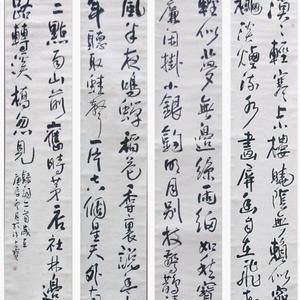 漠漠輕寒上小樓曉陰無賴似窮
秋淡煙流水畫屏幽自在飛花
輕似夢無邊絲雨細如愁寶
簾閑掛小銀鈎明月別枝驚鵲清
風半夜鳴蟬稻花香裏說豐
年聽取蛙聲一片七八個星天外兩
三點雨山前舊時茅店社林邊
路轉溪橋忽見
錄詞二首歲在